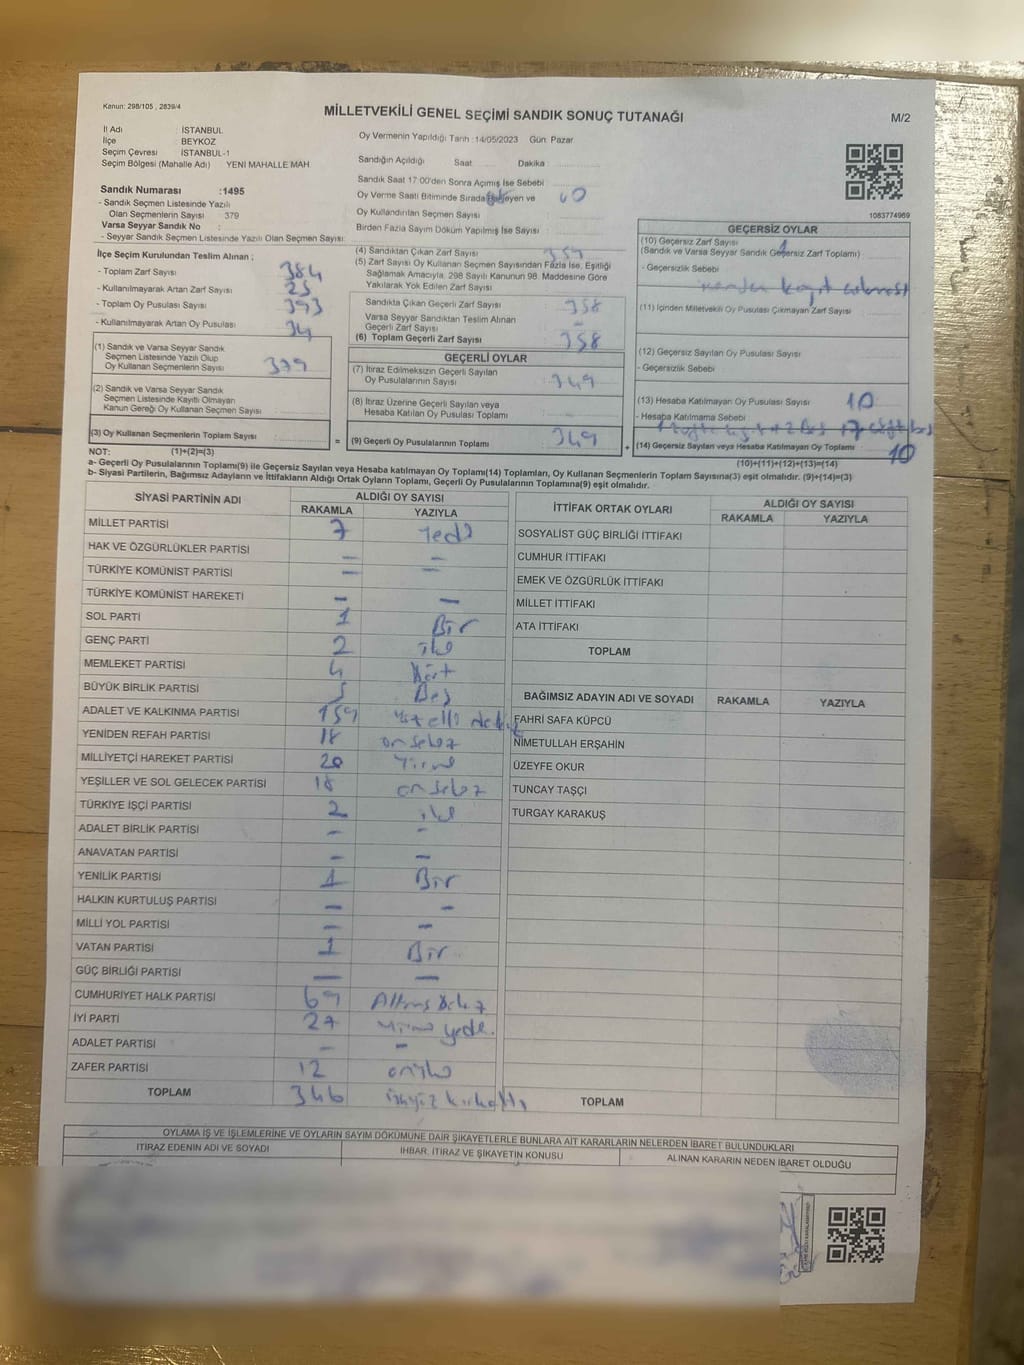 Kanun: 298/105 , 2839/4
MİLLETVEKİLİ GENEL SEÇİMİ SANDIK SONUÇ TUTANAĞI
M/2
İl Adı : İSTANBUL
İlçe BEYKOZ
Seçim Çevresi : İSTANBUL-1
Seçim Bölgesi (Mahalle Adı) YENİ MAHALLE MAH.
Sandık Numarası :1495
- Sandık Seçmen Listesinde Yazılı
Olan Seçmenlerin Sayısı 379
Varsa Seyyar Sandık No :
- Seyyar Sandık Seçmen Listesinde Yazılı Olan Seçmen Sayısı:
Oy Vermenin Yapıldığı Tarih :14/05/2023 Gün: Pazar
Sandığın Açıldığı Saat Dakika
Sandık Saat 17:00'den Sonra Açılmış İse Sebebi
Oy Verme Saati Bitiminde Sırada Bekleyen ve
Oy Kullandırılan Seçmen Sayısı
Birden Fazla Sayım Döküm Yapılmış İse Sayısı
1083774969
İlçe Seçim Kurulundan Teslim Alınan ;
- Toplam Zarf Sayısı 384
- Kullanılmayarak Artan Zarf Sayısı 25
- Toplam Oy Pusulası Sayısı 393
- Kullanılmayarak Artan Oy Pusulası 34
(1) Sandık ve Varsa Seyyar Sandık
Seçmen Listesinde Yazılı Olup
Oy Kullanan Seçmenlerin Sayısı 379
(2) Sandık ve Varsa Seyyar Sandık
Seçmen Listesinde Kayıtlı Olmayan
Kanun Gereği Oy Kullanan Seçmen Sayısı
(3) Oy Kullanan Seçmenlerin Toplam Sayısı =
(4) Sandıktan Çıkan Zarf Sayısı 359
(5) Zarf Sayısı Oy Kullanan Seçmen Sayısından Fazla İse, Eşitliği
Sağlamak Amacıyla, 298 Sayılı Kanunun 98. Maddesine Göre
Yakılarak Yok Edilen Zarf Sayısı
Sandıkta Çıkan Geçerli Zarf Sayısı 358
Varsa Seyyar Sandıktan Teslim Alınan
Geçerli Zarf Sayısı –
(6) Toplam Geçerli Zarf Sayısı 358
GEÇERLİ OYLAR
(7) İtiraz Edilmeksizin Geçerli Sayılan
Oy Pusulalarının Sayısı 349
(8) İtiraz Üzerine Geçerli Sayılan veya
Hesaba Katılan Oy Pusulası Toplamı
(9) Geçerli Oy Pusulalarının Toplamı 349 +
GEÇERSİZ OYLAR
(10) Geçersiz Zarf Sayısı 1
(Sandık ve Varsa Seyyar Sandık Geçersiz Zarf Toplamı)
- Geçersizlik Sebebi
(11) İçinden Milletvekili Oy Pusulası Çıkmayan Zarf Sayısı
(12) Geçersiz Sayılan Oy Pusulası Sayısı
- Geçersizlik Sebebi
(13) Hesaba Katılmayan Oy Pusulası Sayısı 10
- Hesaba Katılmama Sebebi
(14) Geçersiz Sayılan veya Hesaba Katılmayan Oy Toplamı 10
NOT: (1)+(2)=(3)
(10)+(11)+(12)+(13)=(14)
a- Geçerli Oy Pusulalarının Toplamı(9) ile Geçersiz Sayılan veya Hesaba katılmayan Oy Toplamı(14) Toplamları, Oy Kullanan Seçmenlerin Toplam Sayısına(3) eşit olmalıdır. (9)+(14)=(3)
b- Siyasi Partilerin, Bağımsız Adayların ve İttifakların Aldığı Ortak Oyların Toplamı, Geçerli Oy Pusulalarının Toplamına(9) eşit olmalıdır.
SİYASİ PARTİNİN ADI ALDIĞI OY SAYISI
RAKAMLA YAZIYLA
MİLLET PARTİSİ 7 Yedi
HAK VE ÖZGÜRLÜKLER PARTİSİ – –
TÜRKİYE KOMÜNİST PARTİSİ – –
TÜRKİYE KOMÜNİST HAREKETİ – –
SOL PARTİ 1 Bir
GENÇ PARTİ 2 iki
MEMLEKET PARTİSİ 4 Dört
BÜYÜK BİRLİK PARTİSİ 5 Beş
ADALET VE KALKINMA PARTİSİ 159
YENİDEN REFAH PARTİSİ 18 on sekiz
MİLLİYETÇİ HAREKET PARTİSİ 20 Yirmi
YEŞİLLER VE SOL GELECEK PARTİSİ 18 on sekiz
TÜRKİYE İŞÇİ PARTİSİ 2 iki
ADALET BİRLİK PARTİSİ – –
ANAVATAN PARTİSİ – –
YENİLİK PARTİSİ 1 Bir
HALKIN KURTULUŞ PARTİSİ – –
MİLLİ YOL PARTİSİ – –
VATAN PARTİSİ 1 Bir
GÜÇ BİRLİĞİ PARTİSİ – –
CUMHURİYET HALK PARTİSİ 69
İYİ PARTİ 27 yirmi yedi
ADALET PARTİSİ – –
ZAFER PARTİSİ 12 oniki
TOPLAM 346
İTTİFAK ORTAK OYLARI ALDIĞI OY SAYISI
RAKAMLA YAZIYLA
SOSYALİST GÜÇ BİRLİĞİ İTTİFAKI
CUMHUR İTTİFAKI
EMEK VE ÖZGÜRLÜK İTTİFAKI
MİLLET İTTİFAKI
ATA İTTİFAKI
TOPLAM
BAĞIMSIZ ADAYIN ADI VE SOYADI RAKAMLA YAZIYLA
FAHRİ SAFA KÜPCÜ
NİMETULLAH ERŞAHİN
ÜZEYFE OKUR
TUNCAY TAŞÇI
TURGAY KARAKUŞ
TOPLAM
OYLAMA İŞ VE İŞLEMLERİNE VE OYLARIN SAYIM DÖKÜMÜNE DAİR ŞİKAYETLERLE BUNLARA AİT KARARLARIN NELERDEN İBARET BULUNDUKLARI
İTİRAZ EDENİN ADI VE SOYADI İHBAR, İTİRAZ VE ŞİKAYETİN KONUSU ALINAN KARARIN NEDEN İBARET OLDUĞU